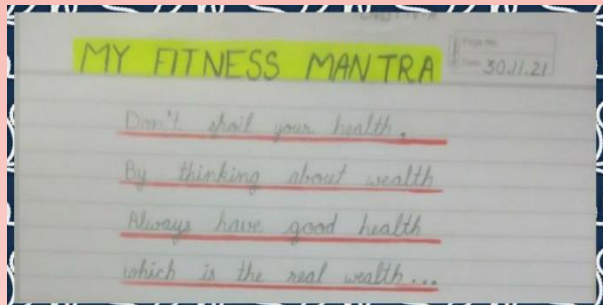 MY FITNESS MANTRA
Page No.
Date 30.11.21
Don't spoil your health,
By thinking about wealth
Always have good health
which is the real wealth...